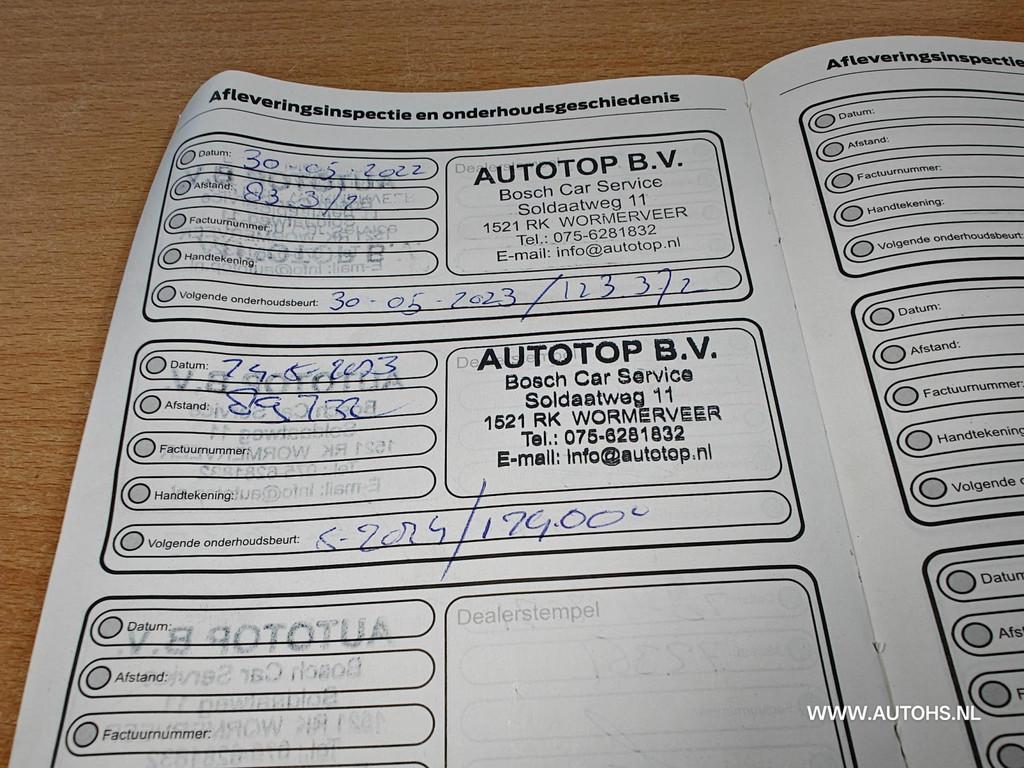 Afleveringsinspectie en onderhoudsgeschiedenis
Datum: 30-05-2022
Afstand: 83.372
Factuurnummer:
Handtekening:
Volgende onderhoudsbeurt: 30-05-2023/123.372
AUTOTOP B.V.
Bosch Car Service
Soldaatweg 11
1521 RK WORMERVEER
Tel.: 075-6281832
E-mail: info@autotop.nl
Datum: 24-5-2023
Afstand: 89.732
Factuurnummer:
Handtekening:
Volgende onderhoudsbeurt: 5-2024/129.000
AUTOTOP B.V.
Bosch Car Service
Soldaatweg 11
1521 RK WORMERVEER
Tel.: 075-6281832
E-mail: info@autotop.nl
Datum:
Afstand:
Factuurnummer:
Dealerstempel
Afleveringsinspectie
Datum:
Afstand:
Factuurnummer:
Handtekening:
Volgende onderhoudsbeurt:
Datum:
Afstand:
Factuurnummer:
Handtekening
Volgende
Datum
WWW.AUTOHS.NL